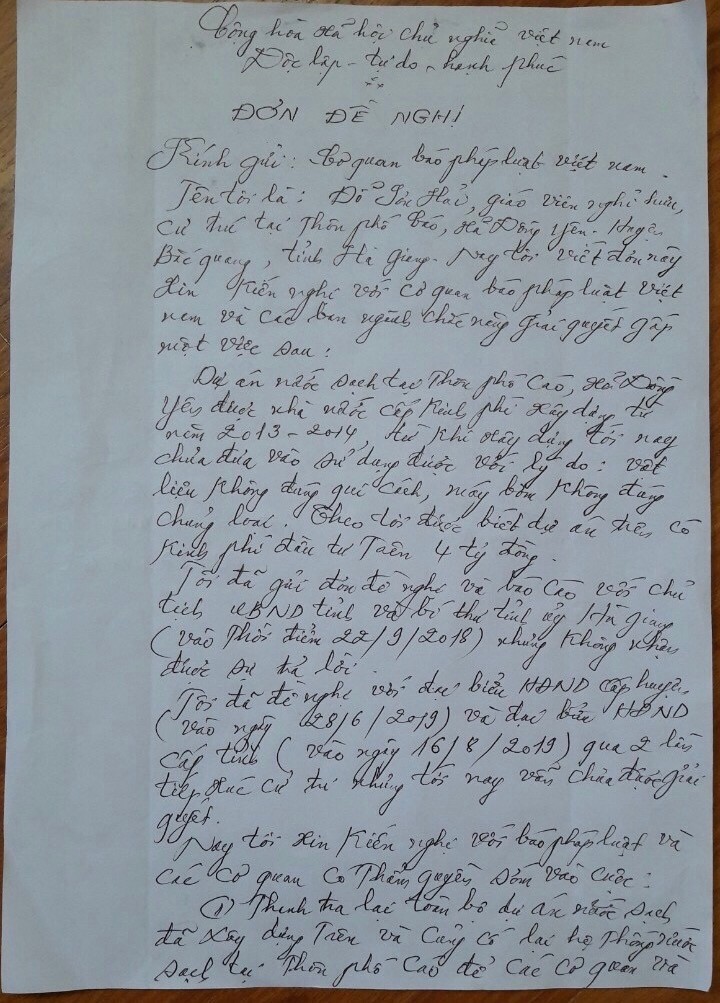 Cộng hòa xã hội chủ nghĩa việt nam
Độc lập - tự do - hạnh phúc
ĐƠN ĐỀ NGHỊ
Kính gửi: Cơ quan báo pháp luật việt nam.
Tên tôi là: Đỗ Hải, giáo viên nghỉ hưu,
cư trú tại thôn phố Cáo, xã Đồng Yên - Huyện
Bắc quang, tỉnh Hà Giang. Nay tôi viết đơn này
xin kiến nghị với cơ quan báo pháp luật Việt
nam và các ban ngành chức năng giải quyết gấp
một việc sau:
Dự án nước sạch tại Thôn phố Cáo, xã Đồng
Yên được nhà nước cấp kinh phí xây dựng từ
năm 2013-2014, từ khi xây dựng tới nay
chưa đưa vào sử dụng được với lý do: vật
liệu không đúng qui cách, máy bơm không đúng
chủng loại. Theo tôi được biết dự án trên có
kinh phí đầu tư Trên 4 tỷ đồng.
Tôi đã gửi đơn đề nghị và báo cáo với chủ
tịch UBND tỉnh và bí thư tỉnh ủy Hà giang
(vào thời điểm 22/9/2018) nhưng không nhận
được sự trả lời.
Tôi đã đề nghị với đại biểu HĐND cấp huyện
(vào ngày 28/6/2019) và đại biểu HĐND
cấp tỉnh (vào ngày 16/8/2019) qua 2 lần
tiếp xúc cử tri nhưng tới nay vẫn chưa được giải
quyết.
Nay tôi xin kiến nghị với báo pháp luật và
các cơ quan có thẩm quyền sớm vào cuộc:
① Thanh tra lại toàn bộ dự án nước sạch
đã xây dựng Trên và củng cố lại hệ thống nước
sạch tại Thôn phố Cáo để các cơ quan và